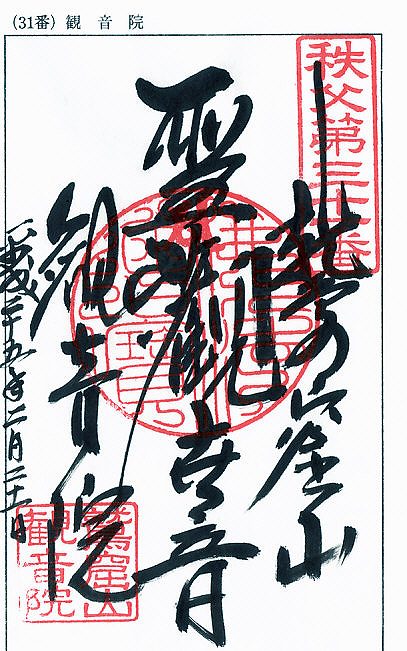 (31番) 観 音 院
秩父第三十一番
鷲窟山
聖観世音
観音院
平成二十五年二月
鷲窟山
観音院